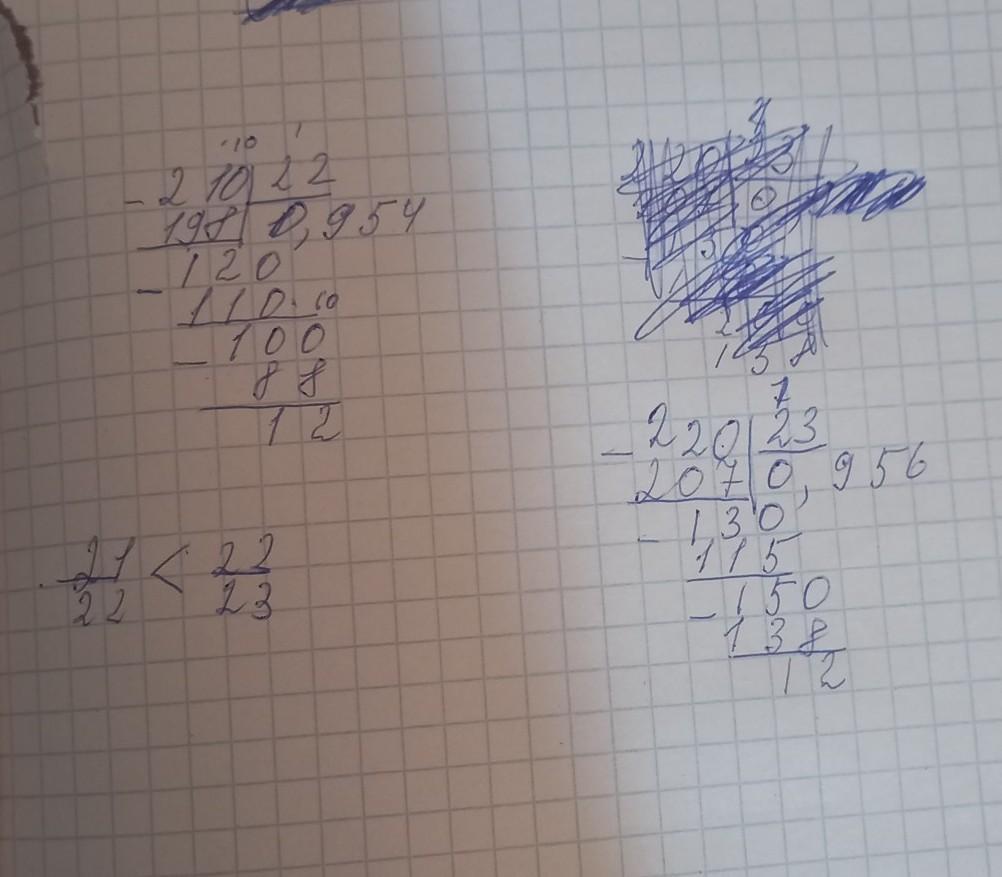 ·10 1
- 210 22
198 0,954
- 120
110 ·10
- 100
88
12
21/22 < 22/23
158
1
- 220 23
207 0,956
- 130
115
- 150
138
12